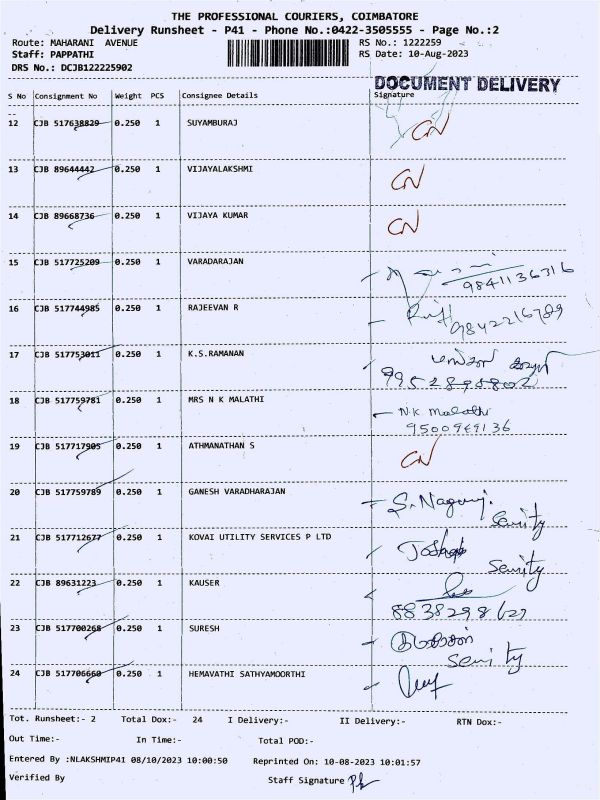 THE PROFESSIONAL COURIERS, COIMBATORE
Delivery Runsheet - P41 - Phone No.:0422-3505555 - Page No.:2
Route: MAHARANI AVENUE RS No.: 1222259
Staff: PAPPATHI RS Date: 10-Aug-2023
DRS No.: DCJB122225902
DOCUMENT DELIVERY
S No Consignment No Weight PCS Consignee Details Signature
12 CJB 517638829 0.250 1 SUYAMBURAJ CN
13 CJB 89644442 0.250 1 VIJAYALAKSHMI CN
14 CJB 89668736 0.250 1 VIJAYA KUMAR CN
15 CJB 517725209 0.250 1 VARADARAJAN
9841136316
16 CJB 517744985 0.250 1 RAJEEVAN R
9842216789
17 CJB 517753011 0.250 1 K.S.RAMANAN
18 CJB 517759781 0.250 1 MRS N K MALATHI N.K Malathi
9500949136
19 CJB 517717905 0.250 1 ATHMANATHAN S CN
20 CJB 517759789 0.250 1 GANESH VARADHARAJAN S. Nagaraj.
21 CJB 517712677 0.250 1 KOVAI UTILITY SERVICES P LTD
22 CJB 89631223 0.250 1 KAUSER
8838298627
23 CJB 517700268 0.250 1 SURESH
24 CJB 517706660 0.250 1 HEMAVATHI SATHYAMOORTHI
Tot. Runsheet:- 2 Total Dox:- 24 I Delivery:- II Delivery:- RTN Dox:-
Out Time:- In Time:- Total POD:-
Entered By :NLAKSHMIP41 08/10/2023 10:00:50 Reprinted On: 10-08-2023 10:01:57
Verified By Staff Signature